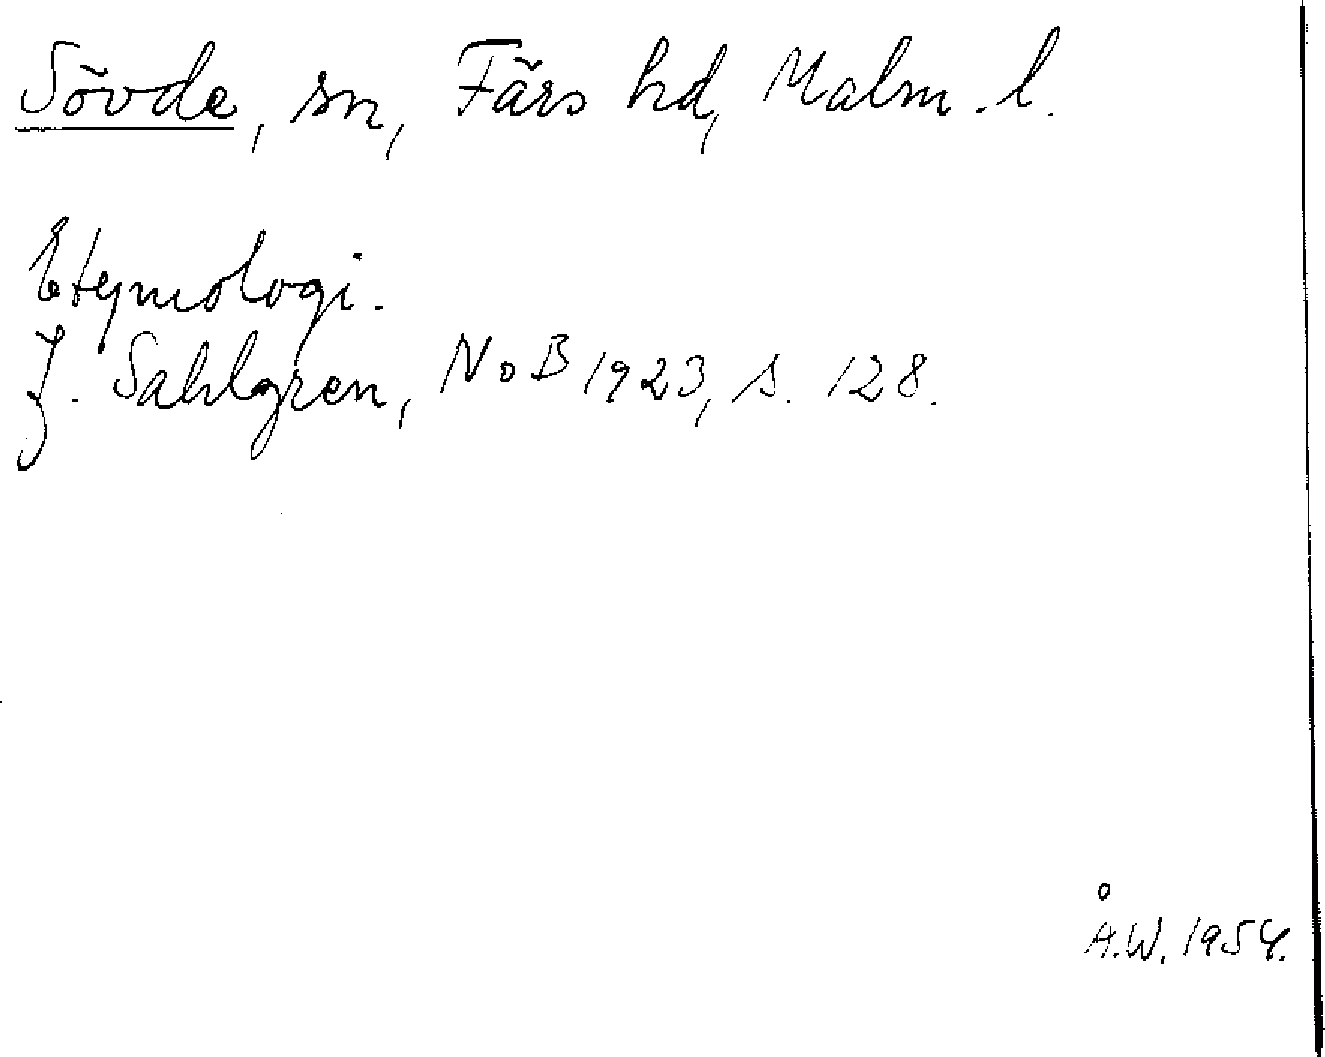 Sövde, sn, Färs hd, Malm. l.
Etymologi.
J. Sahlgren, NoB 1923, s. 128.
Å.W. 1954.